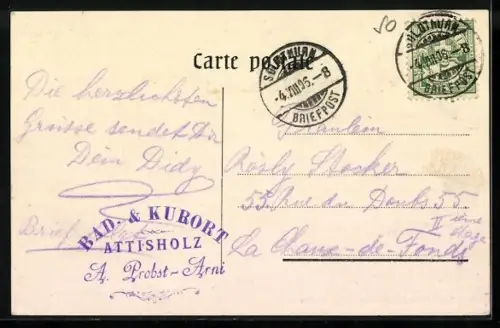 50
Carte postale
SOLOTHURN
-4.VIII.06.-8
BRIEFPOST
SOLOTHURN
-4.VIII.06.-8
BRIEFPOST
Die herzlichsten
Grüsse sendet Dir
Dein Didy
Brief
BAD- & KURORT
ATTISHOLZ
A. Probst-Arni
Fräulein
Rösly Stocker
55 Rue du Doubs 55
II ième étage
La Chaux-de-Fonds